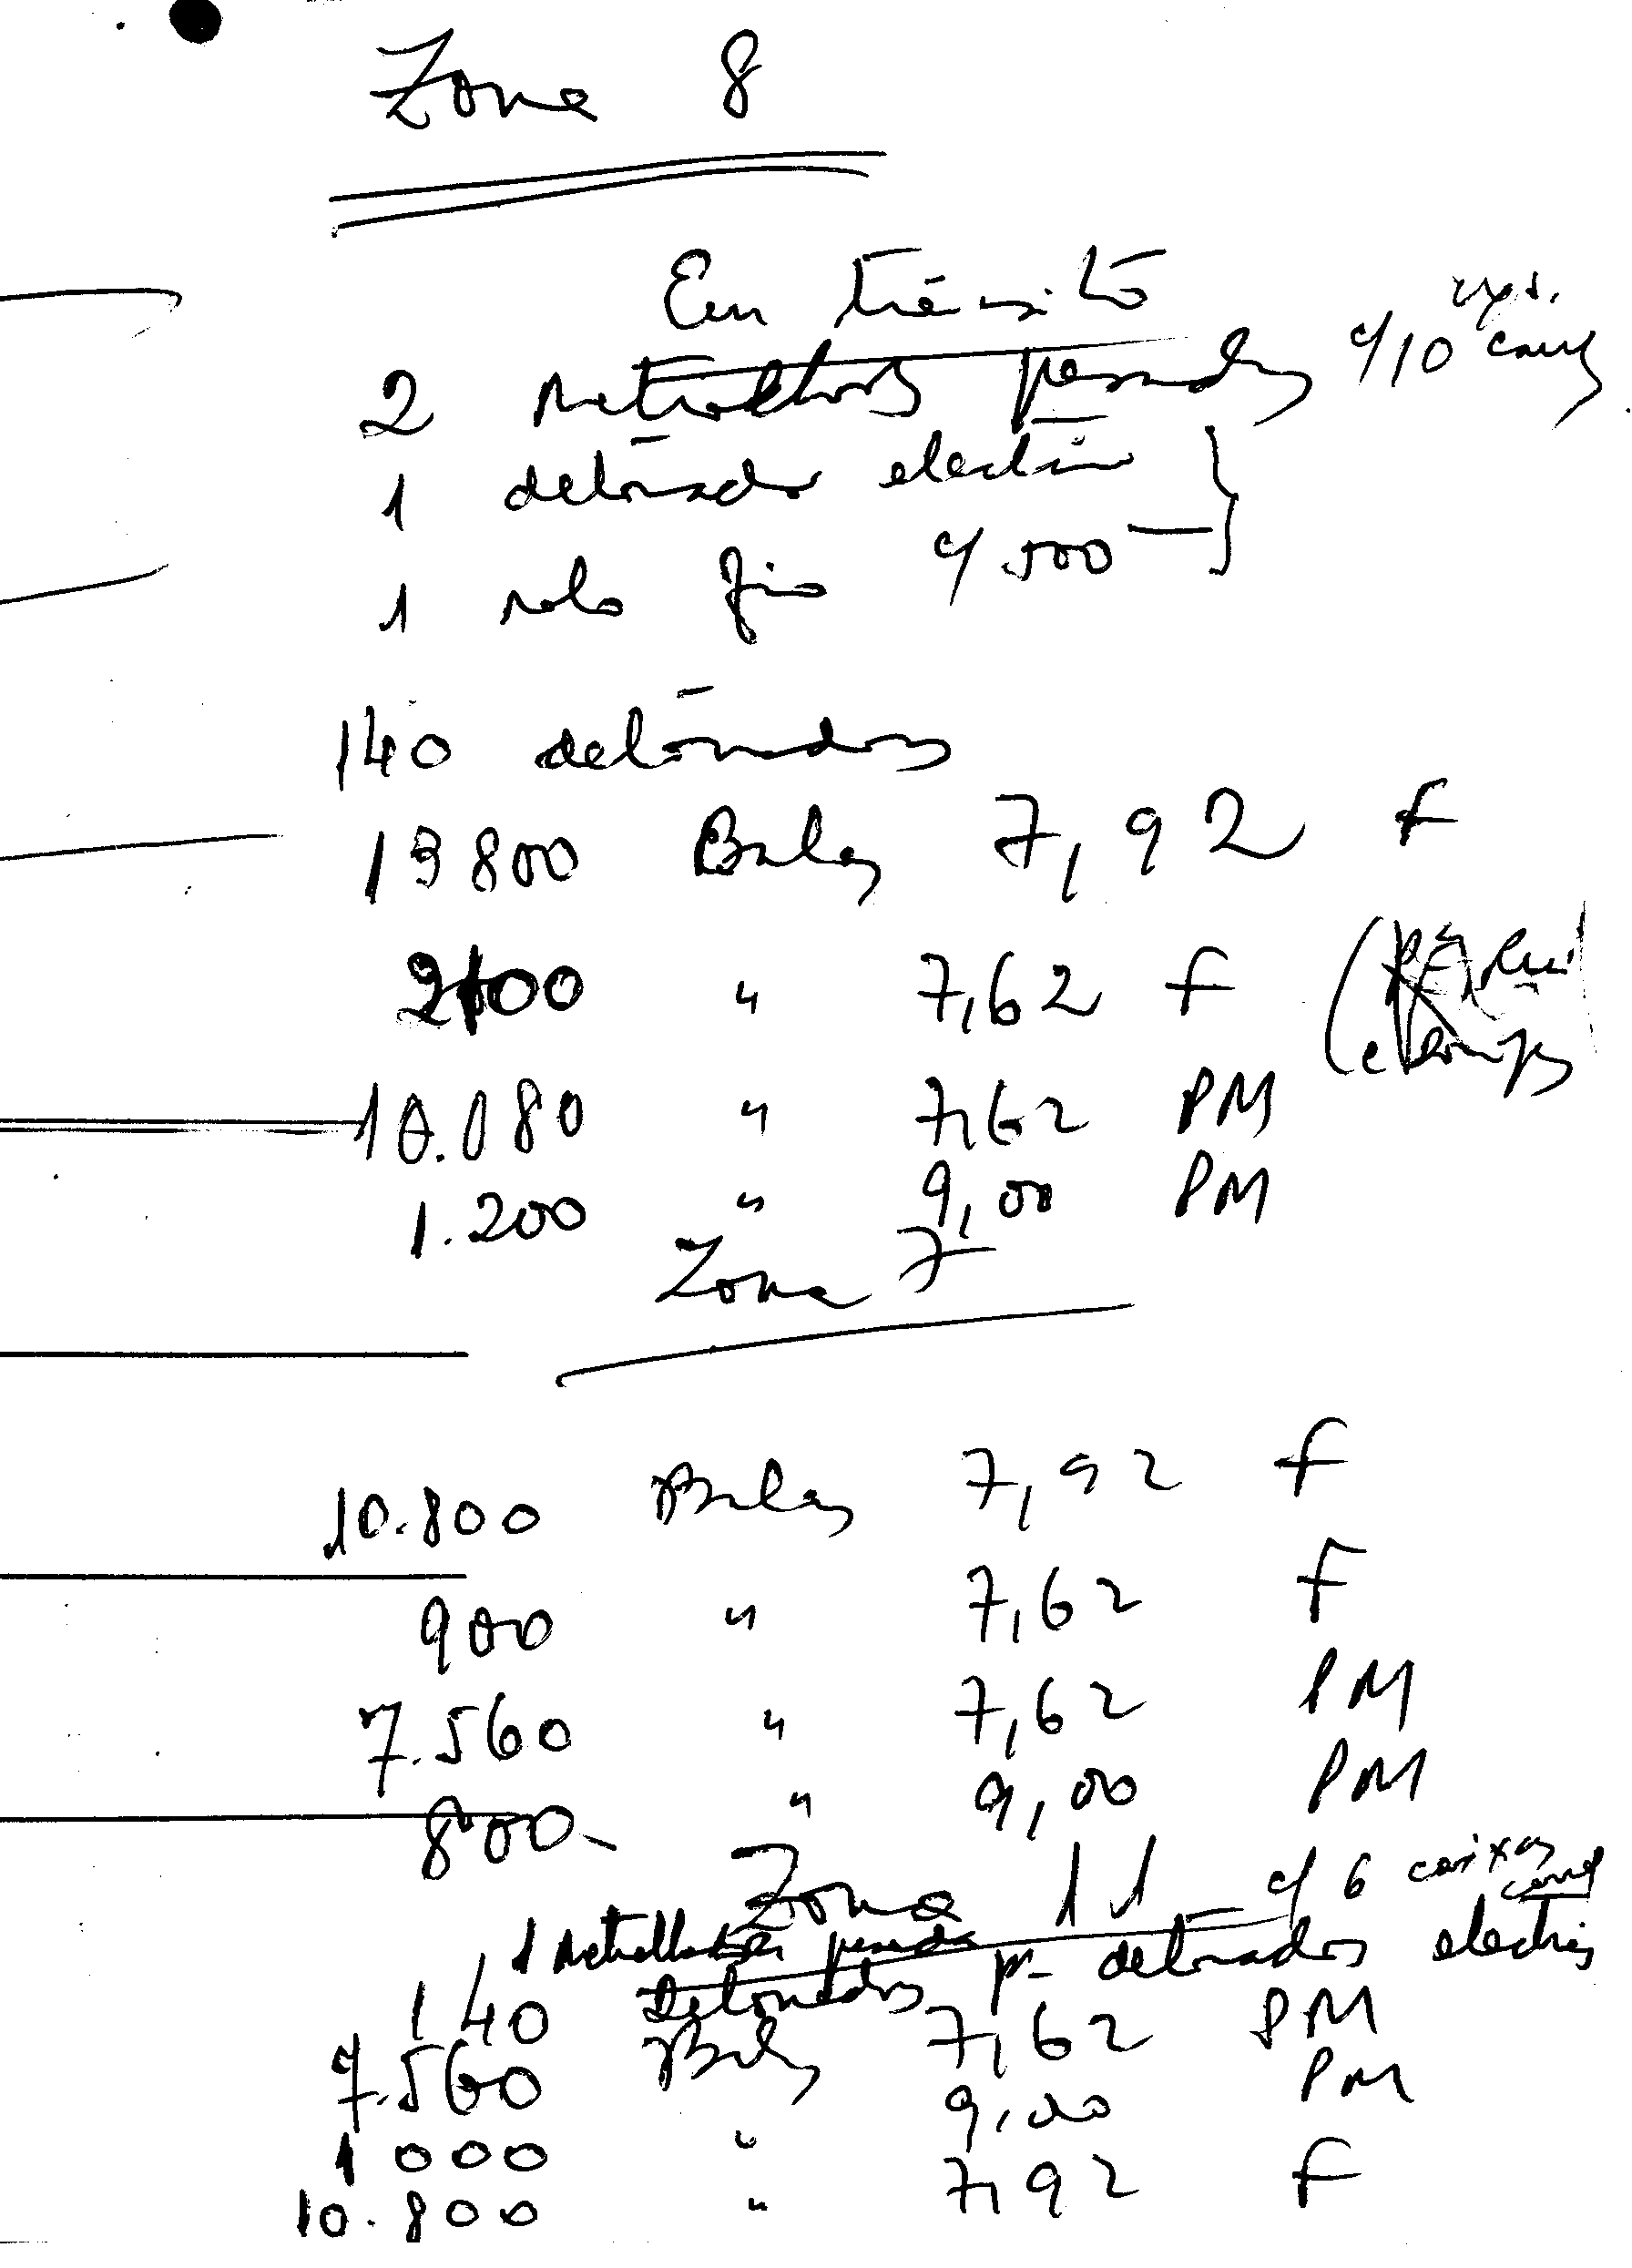 Zona 8
Em trânsito
2 metralhadoras pesadas c/10
1 detonador electrico
1 rolo fio c/500 —
140 detonadores
13800 Balas 7,92 F
2100 " 7,62 F
10.080 " 7,62 PM
1.200 " 9,00 PM
Zona 7
10.800 Balas 7,92 F
900 " 7,62 F
7.560 " 7,62 PM
800- " 9,00 PM
Zona 11 c/ 6 caixas
1 metralhadora pesada
140 Detonadores p- detonadores electricos
7.560 Balas 7,62 PM
1000 " 9,00 PM
10.800 " 7,92 F